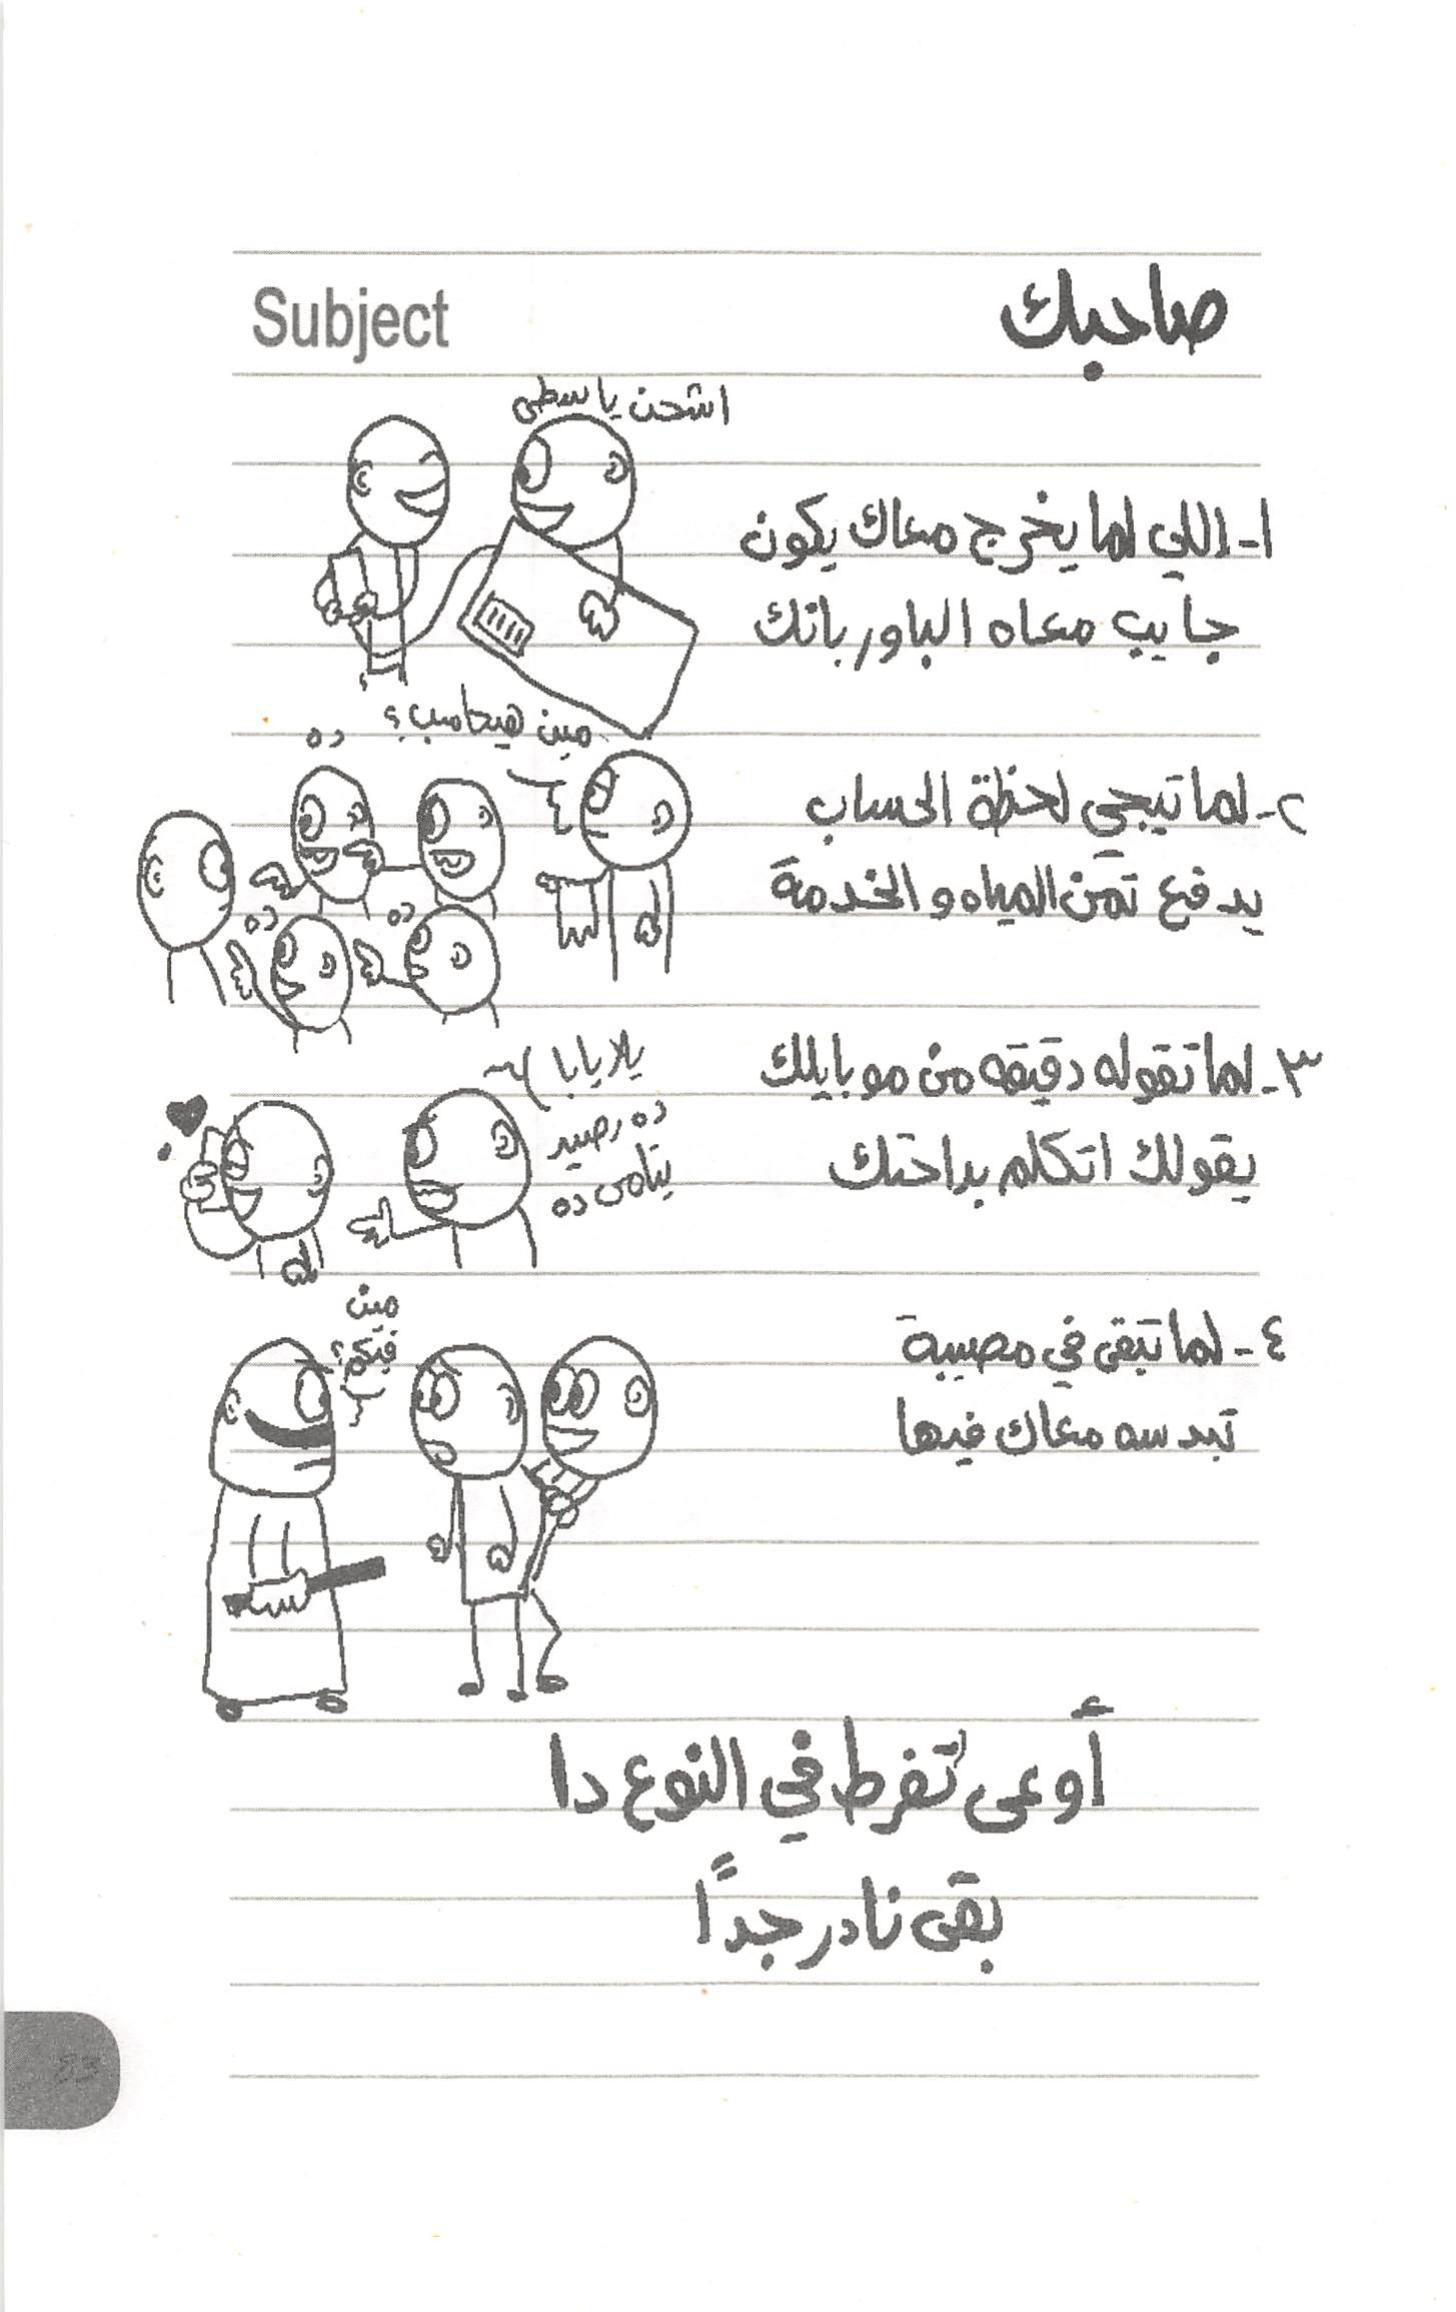 Subject
صاحبك
اشحن ياسطى
١- اللي لما يخرج معاك يكون
جايب معاه الباور بانك
مين هيحاسب؟
ده
ده
ده
٢- لما تيجي لحظة الحساب
يدفع تمن المياه و الخدمة
٣- لما تقوله دقيقه من موبايلك
يقولك اتكلم براحتك
يلا يابا
ده رصيد
يتامى ده
٤- لما تبقى في مصيبة
تبد سه معاك فيها
مين
فيكم؟
أوعى تفرط في النوع دا
بقى نادر جداً
83